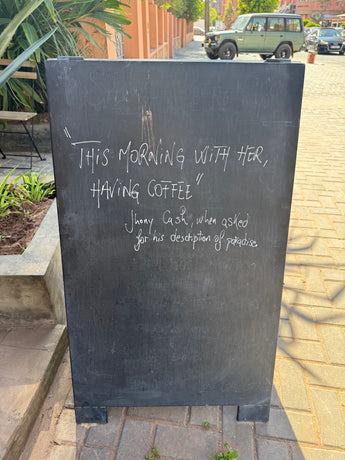 "THIS MORNING WITH HER,
HAVING COFFEE"
Jhony Cash, when asked
for his description of paradise